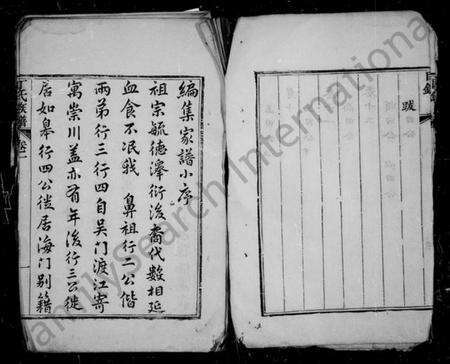 跋
編集家譜小序
祖宗毓德澤衍後裔代數相延
血食不泯哦 鼻祖行二公偕
兩弟行三行四自吳門渡江寄
寓崇川蓋亦有年後行三公徙
居如皋行四公徙居海門別籍
氏族譜 卷一
FamilySearch International